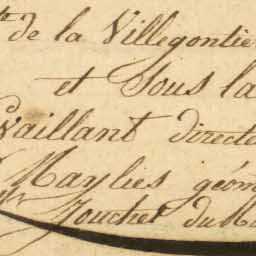 te de la Villegontie
et Sous la
Vaillant directe
Maylies géom
Mr Jouchet du